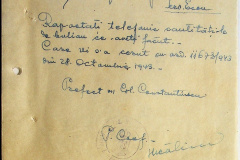 Raportati telefonic cantitatile
de bulion ce aveti făcut.
Care vi s'a cerut cu ord. 11673/943
din 28 Octombrie 1943.
Prefect ss Col. Constantinescu
p. Șef.